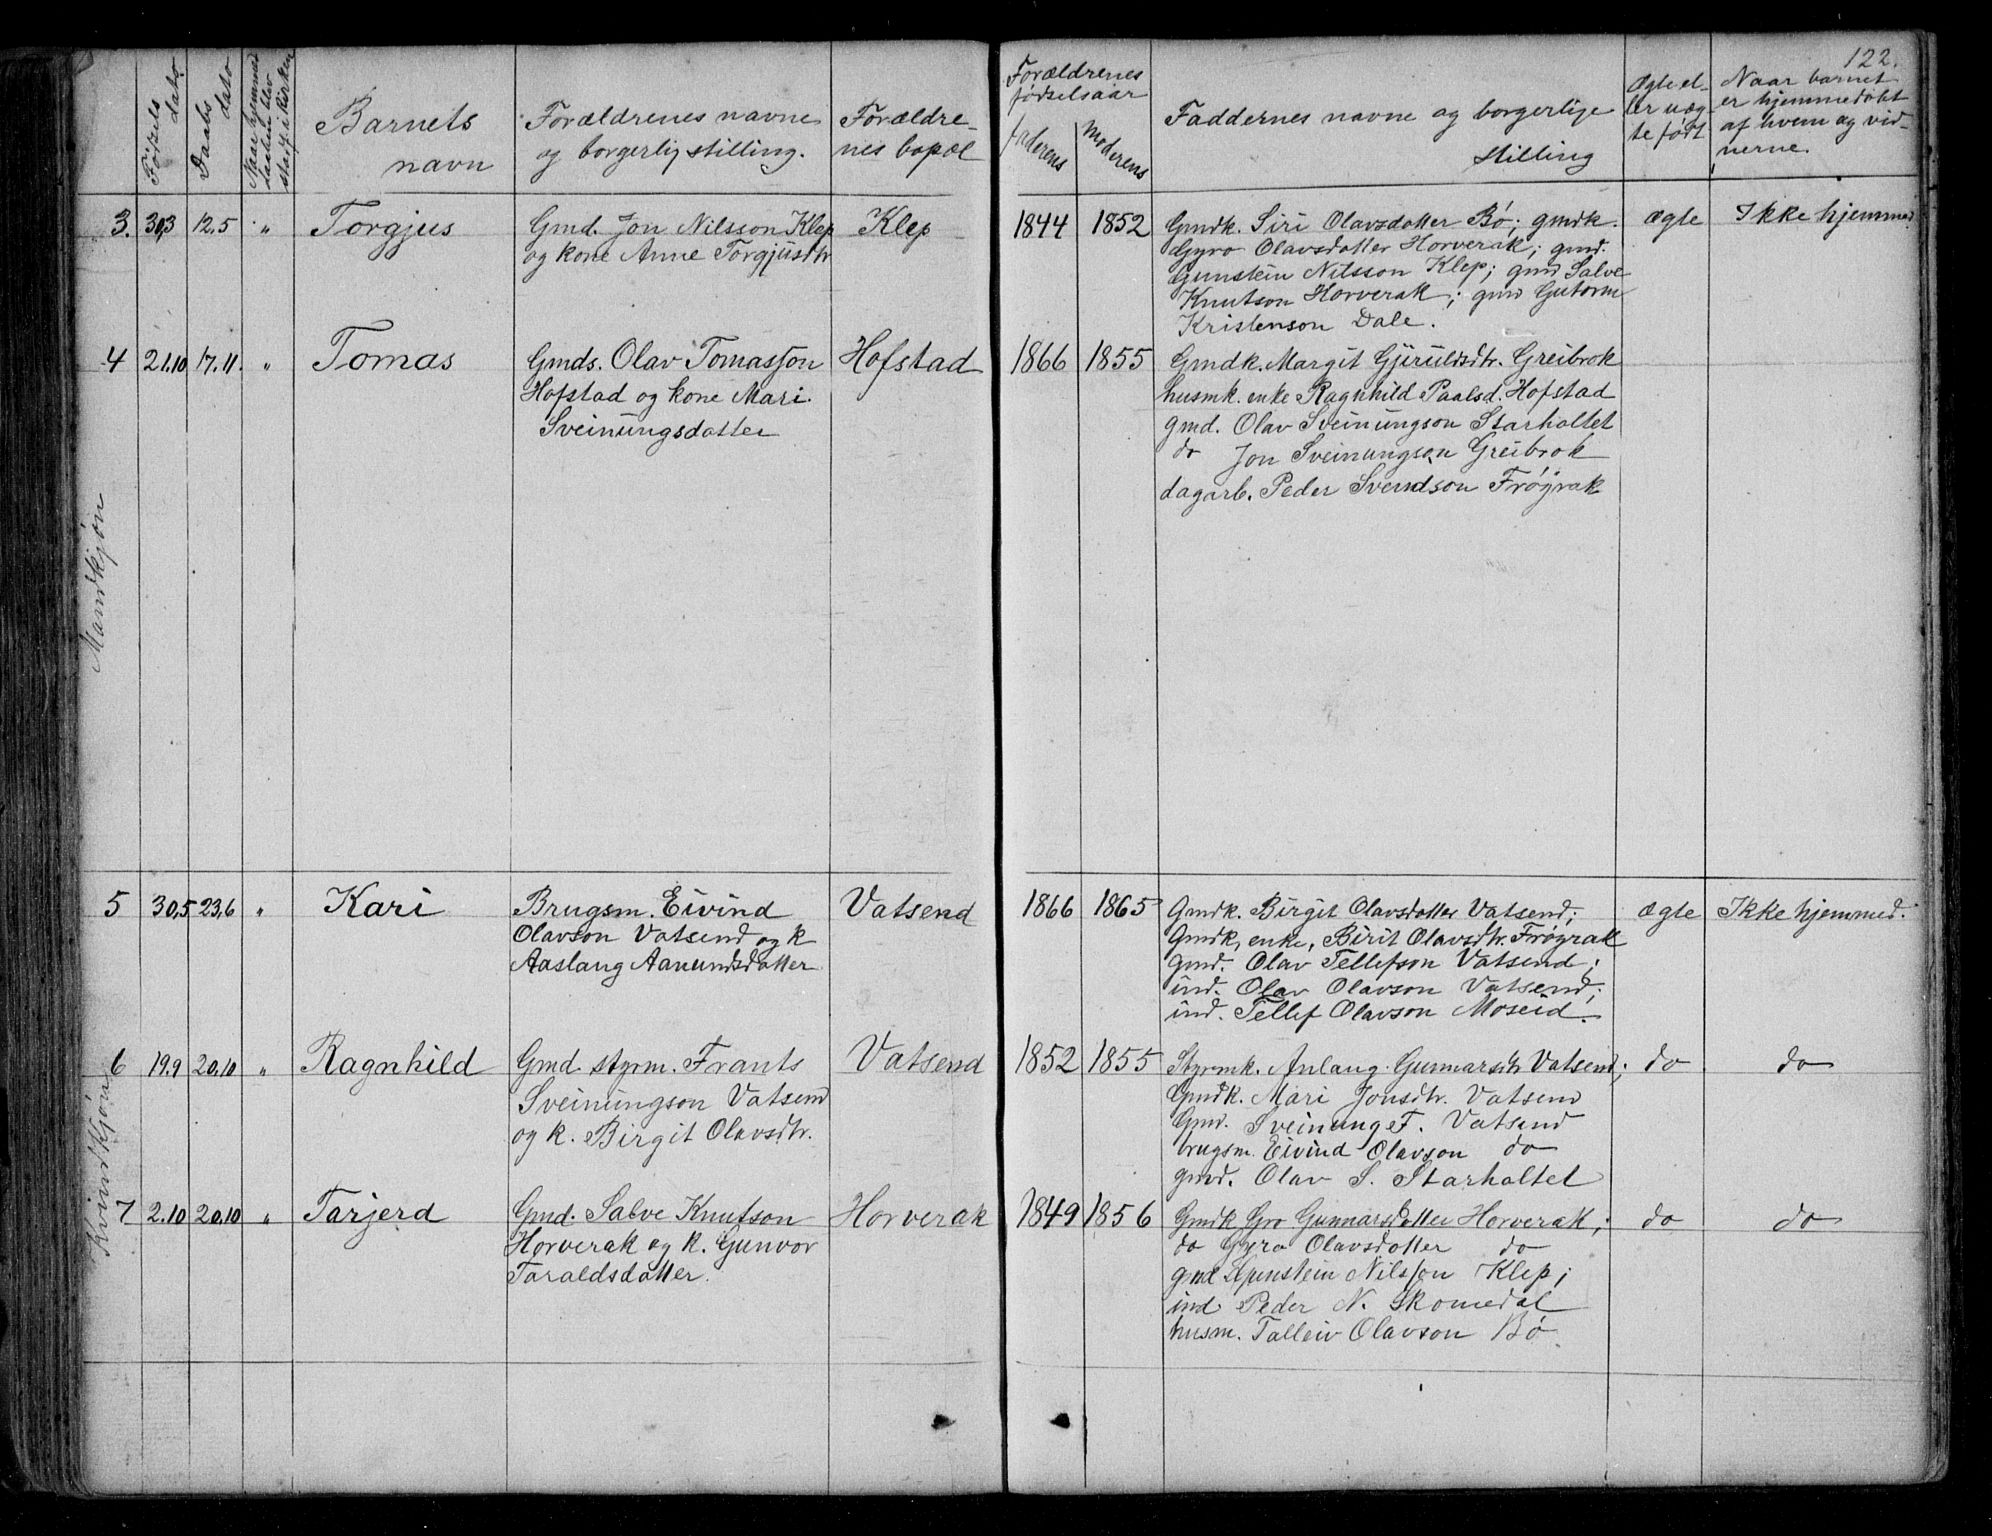 122.
Fødsels dato
Daabs dato
Naar hjemmedaaben blev stadf. i kirken
Barnets navn
Forældrenes navne og borgerlig stilling.
Forældrenes bopæl
Forældrenes fødselsaar
faderens
moderens
Faddernes navne og borgerlige stilling
Ægte eller uægte født
Naar barnet er hjemmedøbt af hvem og vidnerne.
Mandkjøn
3. 30,3 12.5 " Torgjus
Gmd. Jon Nilsson Klep
og kone Anne Torgjusdtr
Klep
1844 1852
Gmdk. Siri Olavsdatter Bø; gmdk.
Gyro Olavsdatter Horverak; gmd.
Gunstein Nilsson Klep; gmd Salve
Knutson Horverak; gmd Gutorm
Kristenson Dale.
ægte Ikke hjemmed.
4 21.10 17.11. " Tomas
Gmds. Olav Tomasson
Hofstad og kone Mari
Sveinungsdatter
Hofstad
1866 1855
Gmdk. Margit Gjeruldsdtr. Greibrok
husmk. enke Ragnhild Paalsd. Hofstad
gmd. Olav Sveinungson Starholtet
do Jon Sveinungson Greibrok
dagarb. Peder Svendson Frøyrak
Kvindkjøn
5 30,5 23,6 " Kari
Brugsm. Eivind
Olavson Vatsend og k
Aaslaug Aanundsdatter
Vatsend
1866 1865
Gmdk. Birgit Olavsdatter Vatsend;
Gmdk, enke, Birit Olavsdtr. Frøyrak
gmd. Olav Tellefson Vatsend;
ind. Olav Olavson Vatsend;
ind. Tellef Olavson Moseid.
ægte Ikke hjemmed.
6 19.9 20.10 " Ragnhild
Gmd. styrm. Frants
Sveinungson Vatsend
og k. Birgit Olavsdtr.
Vatsend
1852 1855
Styrmk. Anlaug Gunnarsdtr Vatsend;
Gmdk. Mari Jonsdtr. Vatsend
Gmd. Sveinung F. Vatsend
brugsm. Eivind Olavson do
gmd. Olav S. Starholtet
do do
7 2.10 20.10 " Tarjerd
Gmd. Salve Knutson
Horverak og k. Gunvor
Taraldsdatter.
Horverak
1849 1856
Gmdk Gro Gunnarsdatter Horverak;
do Gyro Olavsdatter do
gmd Gunstein Nilsson Klep;
ind Peder N. Skomedal
husm. Talleiv Olavson Bø
do do